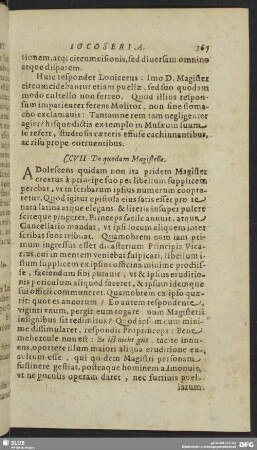 IOCOSERIA. 267
tionem, atq; circumcisionis, sed diversum omnino
atque disparem.
Huic respondet Lonicerus: Imo D. Magister
circumcidebantur etiam puellæ, sed suo quodam
modo cultello non ferreo. Quod illius respon-
sum impatienter ferens Molitor, non sine stoma-
cho exclamauit: Tantamne rem tam negligenter
agier? hisque dictis exemplo in Musæum suum
se refert, studiosis cæteris effusè cachinnantibus,
ac risu prope corruentibus.
CCVII De quodam Magistello.
ADolescens quidam non ita pridem Magister
creatus à principe suo per libellum supplicem
petebat, vt in scribarum ipsius numerum coopta-
retur. Quod igitur epistola eius satis esset pro re
nata latina atque elegans & literis insuper pulcre
sciteque pingeret, Princeps facilè annuit, atque
Cancellario mandat, vt ipsi locum aliquem inter
scribas suos tribuat. Quamobrem cum iam pri-
mum ingressus esset dicasterium Principis Vica-
rius, cui in mentem veniebat sulpicari, libellum i-
stum supplicem ex ipsius officina minimè prodiis-
se, faciendum sibi putauit, vt & ipsius eruditio-
nis periculum aliquod faceret, & ipsum idemque
sui officii commoneret. Quamobrem ex ipso quæ-
rit: quot es annorum? Eo autem respondente,
viginti vnum, pergit eum rogare num Magisterii
insignibus sit redimitus? Quod ipsum cum mini-
me dissimularet, respondit Proprinceps: Bene
mehercule non est: Es ist nicht gut: tacite innu-
ens, oportere illum maiori aliqua eruditione ex-
cultum esse, qui quidem Magistri personam
sustinere gestiat, posteaque hominem admonuit,
vt ne poculis operam daret, nec furtiuis puel-
larum
SLUB